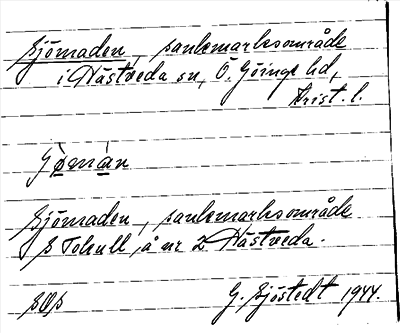 Sjömaden, sankmarksområde
i Hästveda sn, Ö. Göinge hd,
Krist. l.
sjömaden, sankmarksområde
på nr 2 Hästveda.
G. Sjöstedt 1944.